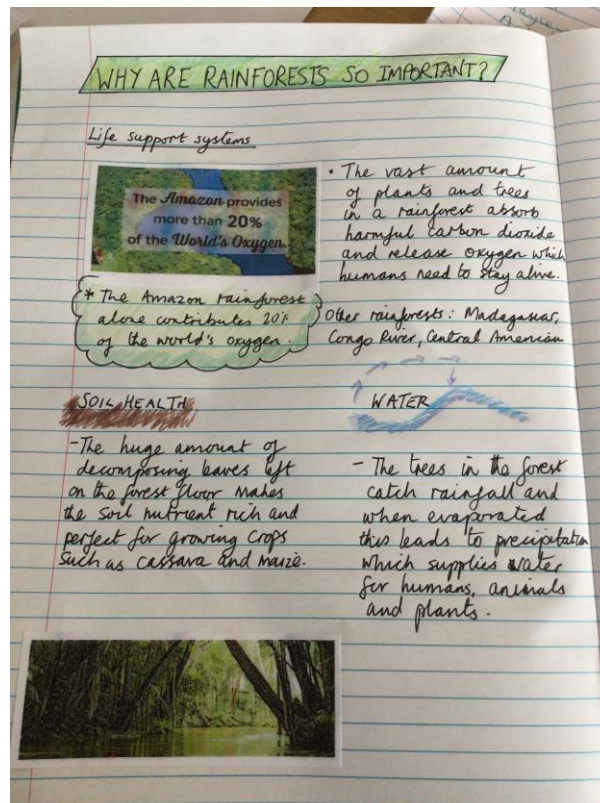 WHY ARE RAINFORESTS SO IMPORTANT?
Life support systems
The Amazon provides
more than 20%
of the World's Oxygen
* The Amazon rainforest
alone contributes 20%
of the world's oxygen.
• The vast amount
of plants and trees
in a rainforest absorb
harmful carbon dioxide
and release oxygen which
humans need to stay alive.
Other rainforests: Madagascar,
Congo River, Central American
SOIL HEALTH
- The huge amount of
decomposing leaves left
on the forest floor makes
the soil nutrient rich and
perfect for growing crops
such as cassava and maize.
WATER
- The trees in the forest
catch rainfall and
when evaporated
this leads to precipitation
which supplies water
for humans, animals
and plants.